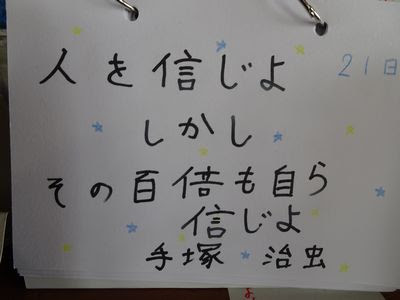 人を信じよ
21日
しかし
その百倍も自ら
信じよ
手塚 治虫